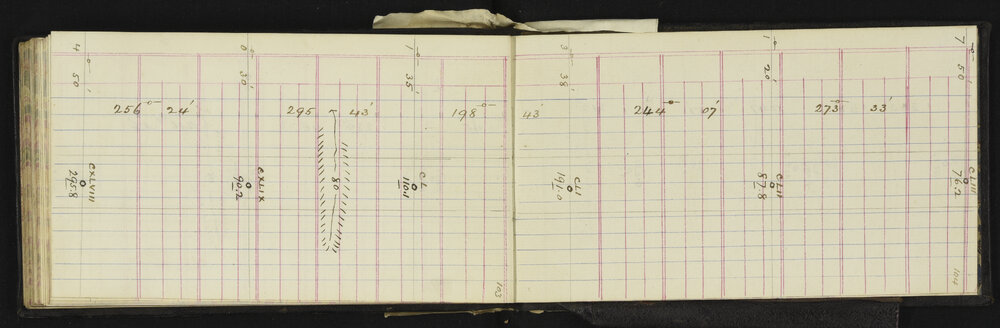 4° 50'
0° 30'
1° 35'
3° 38'
1° 20'
7° 50'
256° 24'
295 43'
198° 43'
244° 07'
273° 33'
80
CXLVIII
295.8
CXLIX
90.2
CL
110.11
CLI
191.0
CLII
87.8
CLIII
76.2
103
104